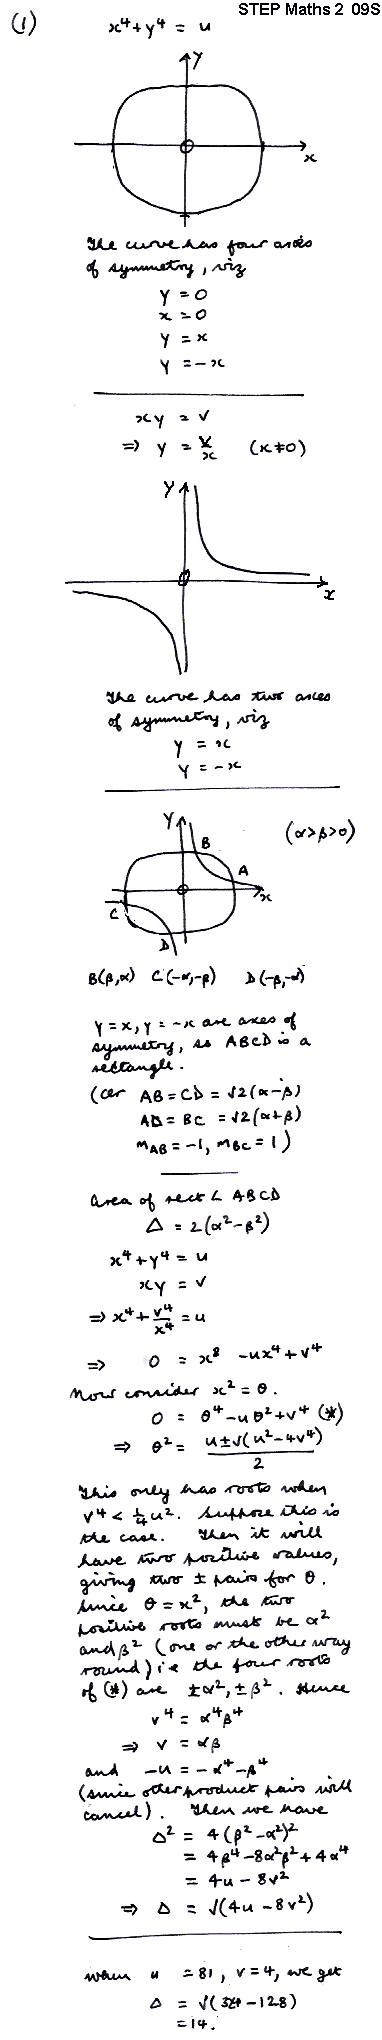 STEP Maths 2 09S
(1) x⁴+y⁴ = u
y
x
The curve has four axes
of symmetry, viz
y = 0
x = 0
y = x
y = -x
xy = v
⇒ y = v/x (x≠0)
y
x
The curve has two axes
of symmetry, viz
y = x
y = -x
y
(α>β>0)
B
A
x
C
D
B(β,α) C(-α,-β) D(-β,-α)
y=x, y=-x are axes of
symmetry, so ABCD is a
rectangle.
(cer AB = CD = √2(α-β)
AD = BC = √2(α+β)
m_AB = -1, m_BC = 1)
Area of rect L ABCD
Δ = 2(α²-β²)
x⁴+y⁴ = u
xy = v
⇒ x⁴ + v⁴/x⁴ = u
⇒ 0 = x⁸ - ux⁴ + v⁴
Now consider x² = θ.
0 = θ⁴ - uθ² + v⁴ (*)
⇒ θ² = (u ± √(u²-4v⁴))/2
This only has roots when
v⁴ < ¼u². Suppose this is
the case. Then it will
have two positive values,
giving two ± pairs for θ.
Since θ = x², the two
positive roots must be α²
and β² (one or the other way
round) i.e the four roots
of (*) are ±α², ±β². Hence
v⁴ = α⁴β⁴
⇒ v = αβ
and -u = -α⁴-β⁴
(since other product pairs will
cancel). Then we have
Δ² = 4(β²-α²)²
= 4β⁴-8α²β²+4α⁴
= 4u - 8v²
⇒ Δ = √(4u-8v²)
when u = 81, v = 4, we get
Δ = √(324-128)
= 14.